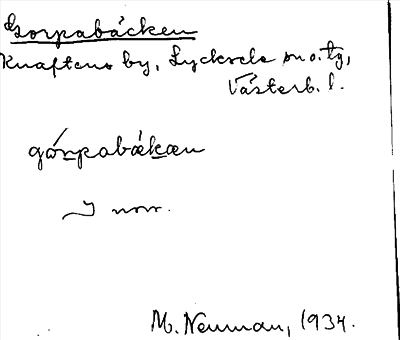 Gorpabäcken
Knaftens by, Lycksele sn o. tg,
Västerb. l.
gårpabäkæn
I nov.
M. Neuman, 1934.